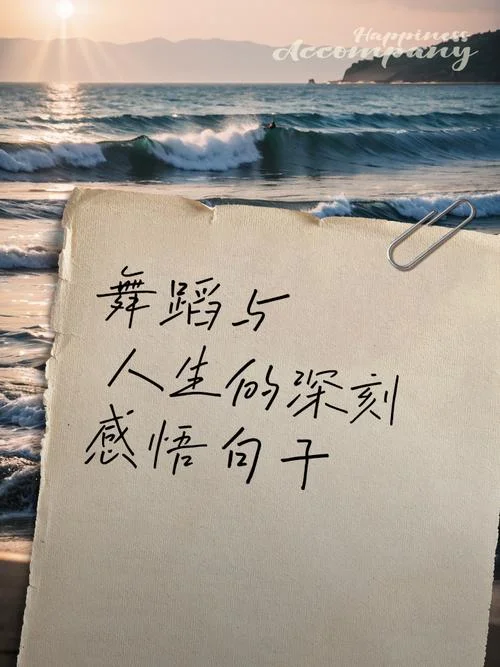 Happiness
Accompany
舞蹈与
人生的深刻
感悟句子